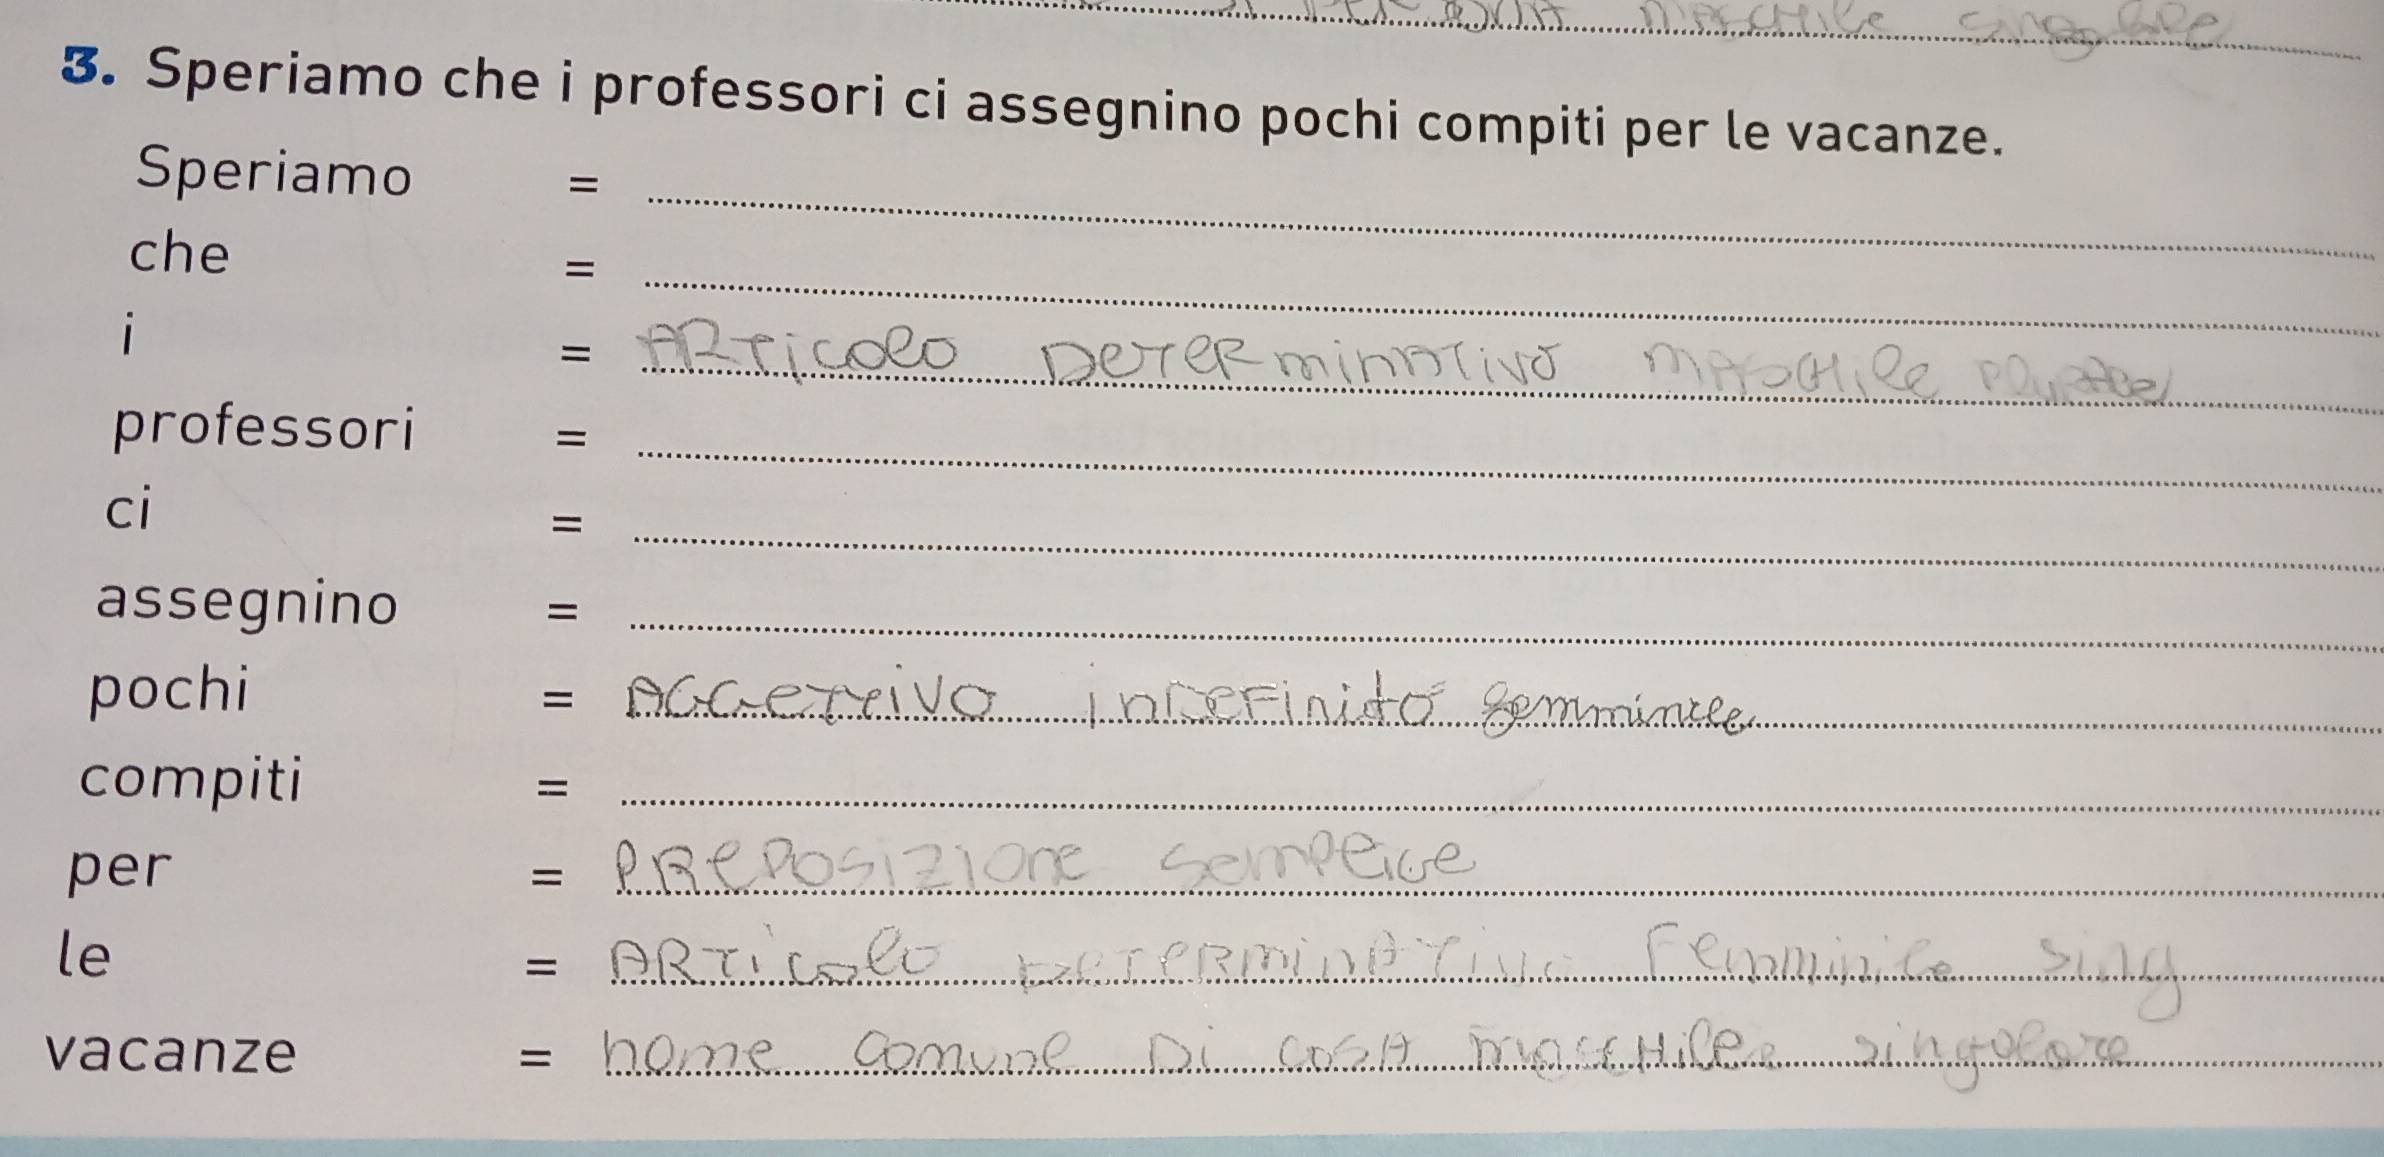 maschile
3. Speriamo che i professori ci assegnino pochi compiti per le vacanze.
Speriamo =
che =
i = ARTicolo DeTeRminATivo mASCHile plurale
professori =
ci =
assegnino =
pochi = AGGeTTivo inDeFinido femminile
compiti =
per = PRePosizione semplice
le = ARTicolo DeTeRminATivo Femminile sing
vacanze = nome comune Di cosA mascHile singolare